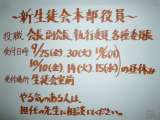 〜新生徒会本部役員〜
役職 会長・副会長・執行委員・各種委員長
受付日時 9/25(金).30(水) 10/6(火)
10/10(土).14(水).15(木)の昼休み
受付場所 生徒会室前
やる気のある人は、
担任の先生に相談してください。